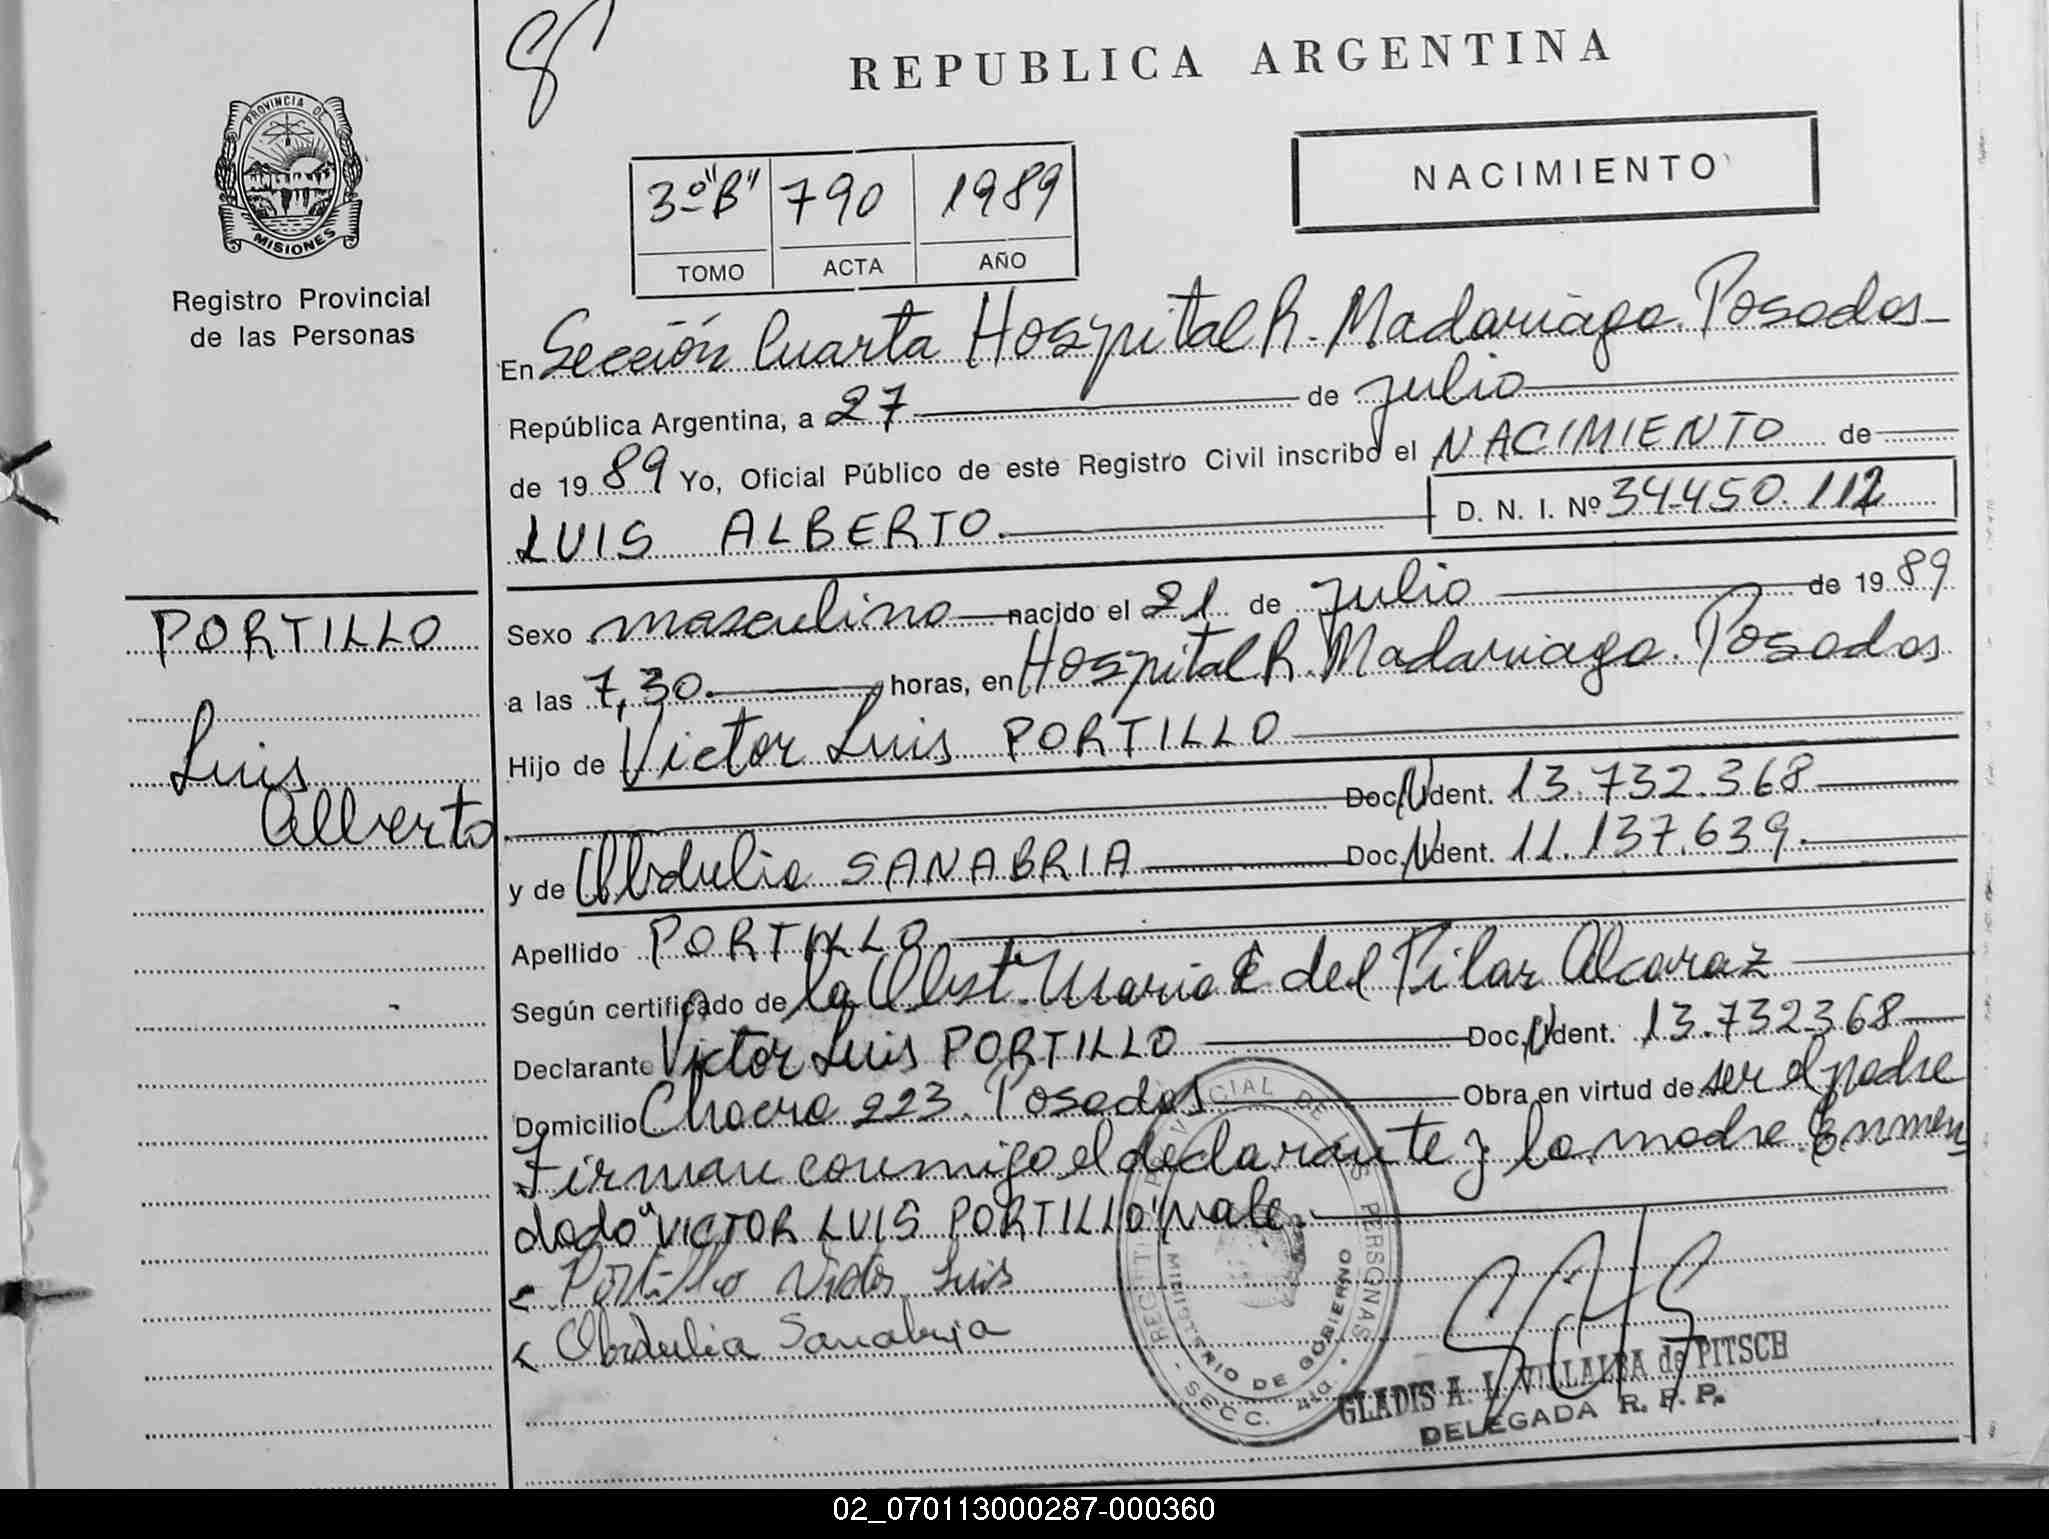 REPUBLICA ARGENTINA
PROVINCIA DE
MISIONES
Registro Provincial
de las Personas
3º "B" 790 1989
TOMO ACTA AÑO
NACIMIENTO
En Sección Cuarta Hospital R. Madariaga. Posadas
República Argentina, a 27 de julio
de 1989 Yo, Oficial Público de este Registro Civil inscribo el NACIMIENTO de
LUIS ALBERTO. D. N. I. Nº 34.450.112
PORTILLO
Luis
Alberto
Sexo masculino nacido el 21 de julio de 1989
a las 7,30. horas, en Hospital R. Madariaga. Posadas
Hijo de Victor Luis PORTILLO
Doc. N Ident. 13.732.368
y de Obdulia SANABRIA Doc. N Ident. 11.137.639.
Apellido PORTILLO
Según certificado de la Obst. Maria C del Pilar Alcaraz
Declarante Victor Luis PORTILLO Doc. N Ident. 13.732.368
Domicilio Chacra 223. Posadas Obra en virtud de ser el padre
Firman conmigo el declarante y la madre. Enmen
dado "VICTOR LUIS PORTILLO" vale.
Portillo Victor Luis
Obdulia Sanabria
REGISTRO PROVINCIAL DE LAS PERSONAS
MINISTERIO DE GOBIERNO
- SECC. 4ta. -
GLADIS A. L. VILLALBA de PITSCH
DELEGADA R. P. P.
02_070113000287-000360